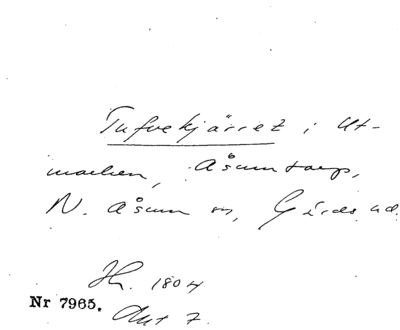 Tufvekjärret i Ut-
marken, Åsumtorp,
N. Åsum sn, Gärds hd.
Hr. 1804
Nr 7965.
Akt 7.